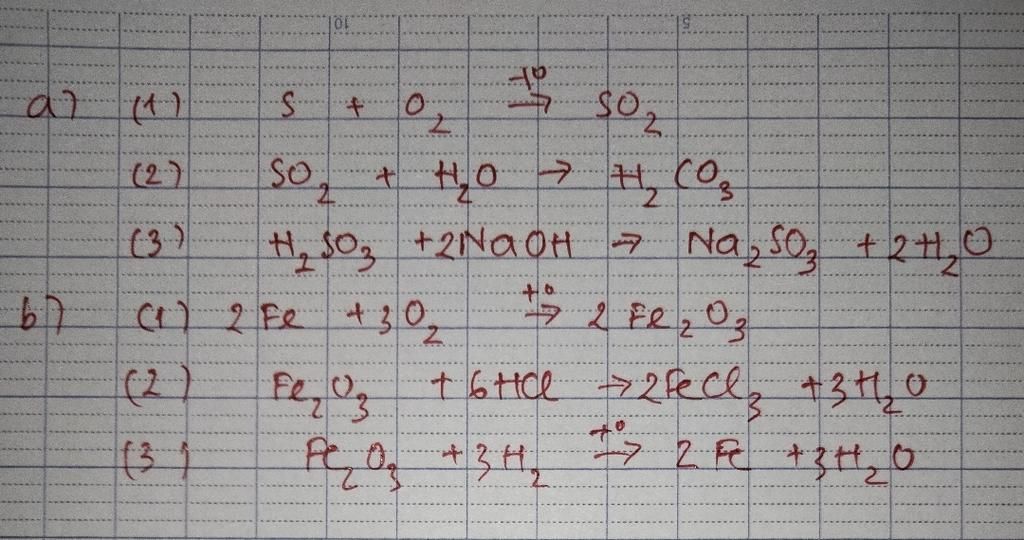 10 5
a) (1) S + O₂ →t° SO₂
(2) SO₂ + H₂O → H₂CO₃
(3) H₂SO₃ + 2NaOH → Na₂SO₃ + 2H₂O
b) (1) 2Fe + 3O₂ →t° 2Fe₂O₃
(2) Fe₂O₃ + 6HCl → 2FeCl₃ + 3H₂O
(3) Fe₂O₃ + 3H₂ →t° 2Fe + 3H₂O